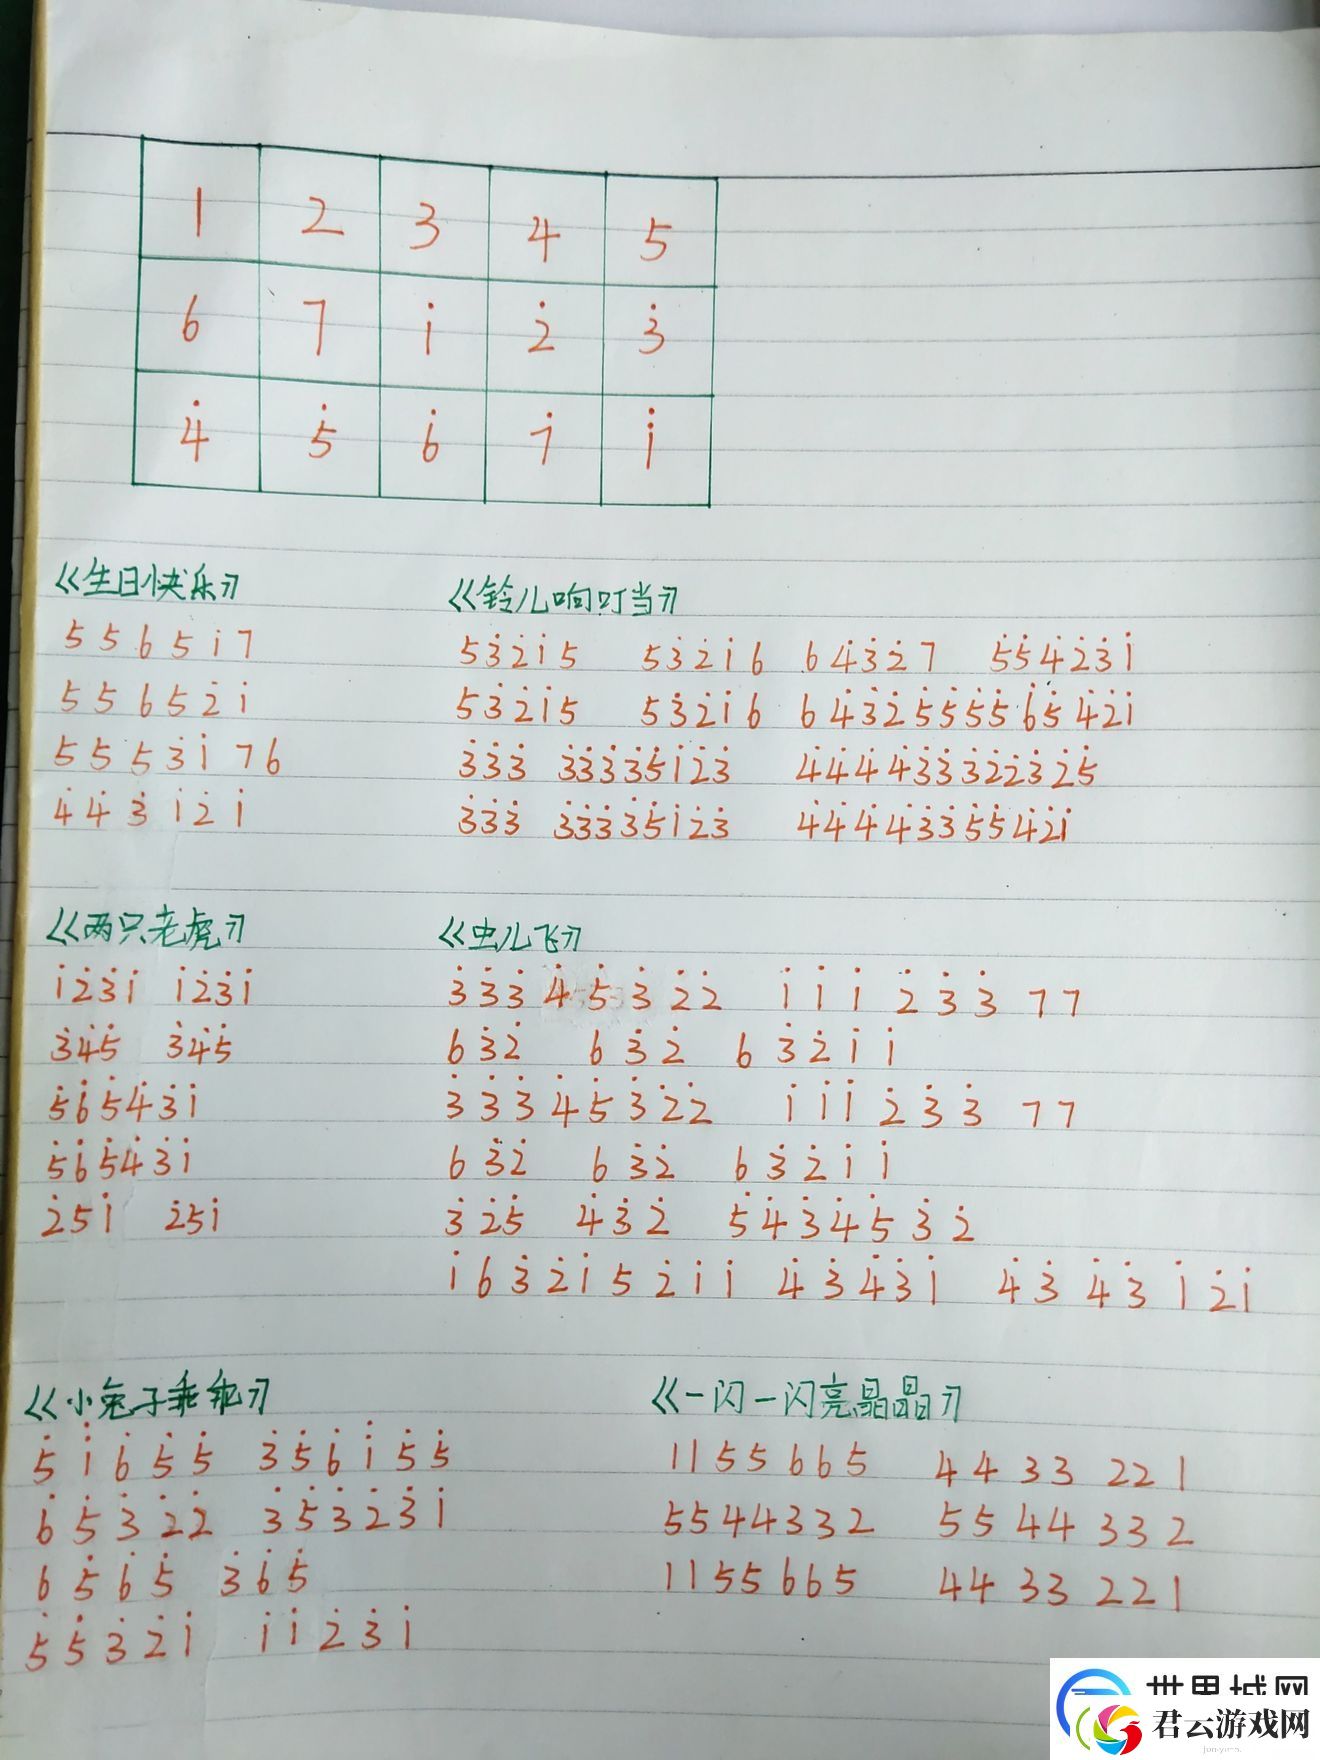 1 2 3 4 5
6 7 1̇ 2̇ 3̇
4̇ 5̇ 6̇ 7̇ 1̈
《生日快乐》
5 5 6 5 1̇ 7
5 5 6 5 2̇ 1̇
5 5 5̇ 3̇ 1̇ 7 6
4̇ 4̇ 3̇ 1̇ 2̇ 1̇
《铃儿响叮当》
53̇2̇1̇5 53̇2̇1̇6 64̇3̇2̇7 5̇5̇4̇2̇3̇1̇
53̇2̇1̇5 53̇2̇1̇6 64̇3̇2̇5̇5̇5̇5̇6̇5̇4̇2̇1̇
3̇3̇3̇ 3̇3̇3̇3̇5̇1̇2̇3̇ 4̇4̇4̇4̇3̇3̇3̇2̇2̇3̇2̇5̇
3̇3̇3̇ 3̇3̇3̇3̇5̇1̇2̇3̇ 4̇4̇4̇4̇3̇3̇5̇5̇4̇2̇1̇
《两只老虎》
1̇2̇3̇1̇ 1̇2̇3̇1̇
3̇4̇5̇ 3̇4̇5̇
5̇6̇5̇4̇3̇1̇
5̇6̇5̇4̇3̇1̇
2̇51̇ 2̇51̇
《虫儿飞》
3̇ 3̇ 3̇ 4̇ 5̇ 3̇ 2̇ 2̇ 1̇ 1̇ 1̇ 2̇ 3̇ 3̇ 7 7
6 3̇ 2̇ 6 3̇ 2̇ 6 3̇ 2̇ 1̇ 1̇
3̇ 3̇ 3̇ 4̇ 5̇ 3̇ 2̇ 2̇ 1̇ 1̇ 1̇ 2̇ 3̇ 3̇ 7 7
6 3̇ 2̇ 6 3̇ 2̇ 6 3̇ 2̇ 1̇ 1̇
3̇ 2̇ 5̇ 4̇ 3̇ 2̇ 5̇ 4̇ 3̇ 4̇ 5̇ 3̇ 2̇
1̇ 6 3̇ 2̇ 1̇ 5 2̇ 1̇ 1̇ 4̇ 3̇ 4̇ 3̇ 1̇ 4̇ 3̇ 4̇ 3̇ 1̇ 2̇ 1̇
《小兔子乖乖》
5̇ 1̈ 6̇ 5̇ 5̇ 3̇ 5̇ 6̇ 1̈ 5̇ 5̇
6̇ 5̇ 3̇ 2̇ 2̇ 3̇ 5̇ 3̇ 2̇ 3̇ 1̇
6 5̇ 6̇ 5̇ 3̇ 6̇ 5̇
5̇ 5̇ 3̇ 2̇ 1̇ 1̇ 1̇ 2̇ 3̇ 1̇
《一闪一闪亮晶晶》
1 1 5 5 6 6 5 4 4 3 3 2 2 1
5 5 4 4 3 3 2 5 5 4 4 3 3 2
1 1 5 5 6 6 5 4 4 3 3 2 2 1
君云游戏网